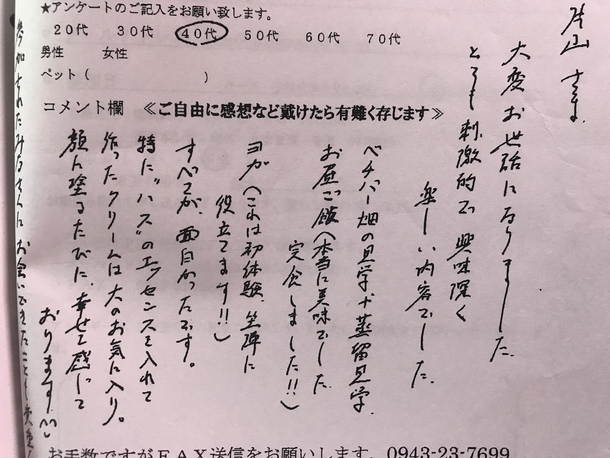 ★アンケートのご記入をお願い致します。
20代 30代 40代 50代 60代 70代
男性 女性
ペット( )
コメント欄 ≪ご自由に感想など戴けたら有難く存じます≫
片山 さま
大変お世話になりました。
とても刺激的で興味深く
楽しい内容でした。
ベチバー畑の見学+蒸留見学、
お昼ご飯(本当に美味でした
完食しました!!)
ヨガ(これは初体験、坐禅に
役立てます!!)
すべてが、面白かったです。
特に、"ハス"のエッセンスを入れて
作ったクリームは大のお気に入り。
顔に塗るたびに、幸せを感じて
おります
参加されたみなさんにお会いできたことも
お手数ですがFAX送信をお願いします。0943-23-7699